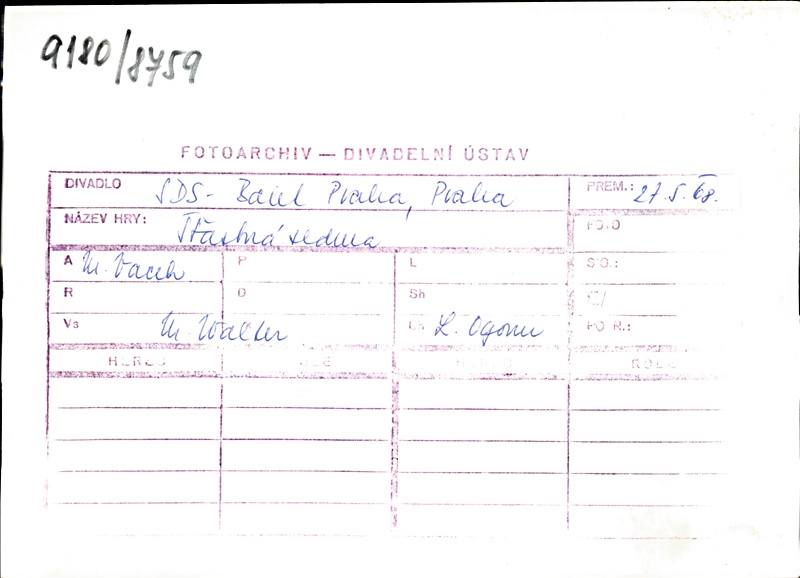 9180/8759
FOTOARCHIV — DIVADELNÍ ÚSTAV
DIVADLO SDS - Balet Praha, Praha PREM.: 27.5.68.
NÁZEV HRY: Šťastná sedma
A M. Vacek P L
R D Sh
Vs M. Walter L. Ogoun PO R.:
HEREC ROLE